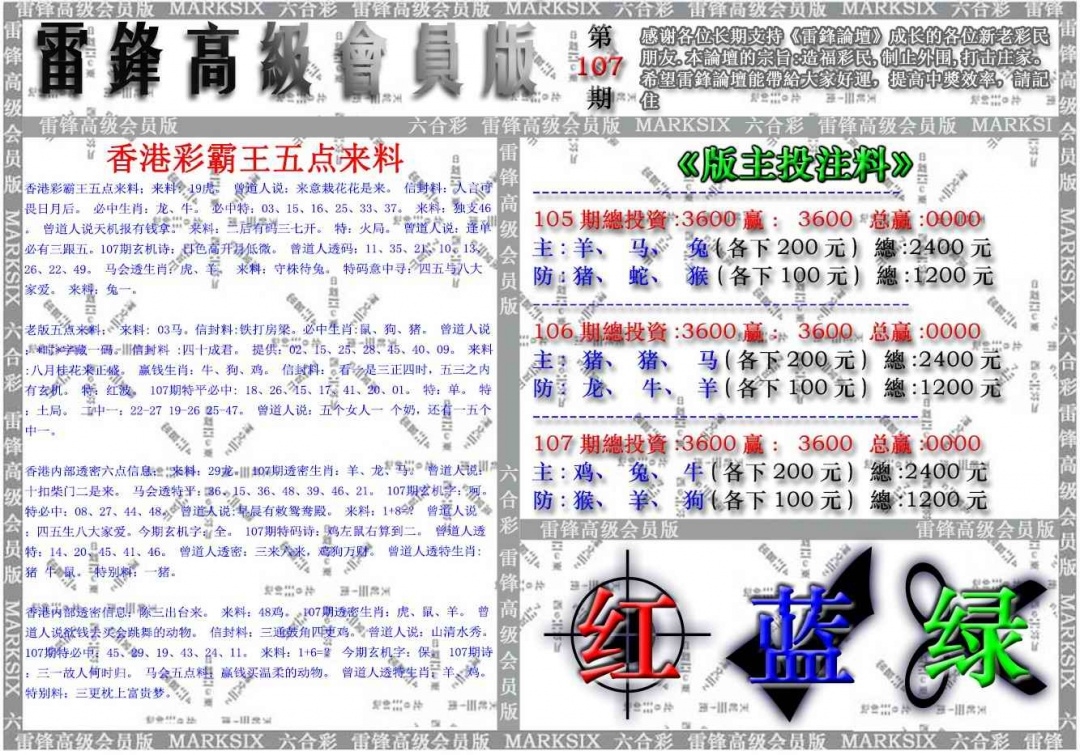 雷锋高级会员版 MARKSIX 六合彩 雷锋高级会员版 MARKSIX 六合彩 雷锋高级会员版 MARKSIX 六合彩 雷锋
雷鋒高級會員版
第
107
期
感谢各位长期支持《雷鋒論壇》成长的各位新老彩民
朋友.本論壇的宗旨:造福彩民,制止外围,打击庄家。
希望雷鋒論壇能帶給大家好運，提高中獎效率，請記
住
雷锋高级会员版 六合彩 雷锋高级会员版 MARKSIX 六合彩 雷锋高级会员版 MARKSI
香港彩霸王五点来料
香港彩霸王五点来料：来料：19虎。 曾道人说：来意栽花花是来。 信封料：人言可
畏日月后。 必中生肖：龙、牛。 必中特：03、15、16、25、33、37。 来料：独支46
。 曾道人说天机报有钱拿。 来料：二后有码三七开。 特：火局。 曾道人说：逢单
必有三跟五。107期玄机诗：白色高开寻低微。 曾道人透码：11、35、21、10、13、
26、22、49。 马会透生肖：虎、羊。 来料：守株待兔。 特码意中寻：四五与八大
家爱。 来料：兔一。
老版五点来料： 来料: 03马。信封料:铁打房梁。必中生肖:鼠、狗、猪。 曾道人说
字藏一码。 信封料 :四十成君。 提供：02、15、25、28、45、40、09。 来料
:八月桂花来正盛。 赢钱生肖：牛、狗、鸡。 信封料： 看 是三正四时，五三之内
有玄机。 特：红波。 107期特平必中：18、26、15、17、41、20、01。 特：单。 特
：土局。 二中一：22-27 19-26 25-47。 曾道人说：五个女人一 个奶，还有一五个
中一。
香港内部透密六点信息： 来料：29龙。 107期透密生肖：羊、龙、马。 曾道人说：
十扣柴门二是来。 马会透特平：36、15、36、48、39、46、21。 107期玄机字：呵。
特必中：08、27、44、48。 曾道人说:早晨有救驾殿。 来料：1+8=? 曾道人说
：四五生八大家爱。今期玄机字：全。 107期特码诗：鸡左鼠右算到二。 曾道人透
特：14、20、45、41、46。 曾道人透密：三来六来，鸡狗万财。 曾道人透特生肖：
猪 牛 鼠。 特别料：一猪。
香港内部透密信息：陈三出台来。 来料：48鸡。 107期透密生肖：虎、鼠、羊。 曾
道人说欲钱去买会跳舞的动物。 信封料：三通鼓角四更鸡。 曾道人说：山清水秀。
107期特必中：45、29、19、43、24、11。 来料：1+6=? 今期玄机字：保。 107期诗
：三一故人何时归。 马会五点料：赢钱买温柔的动物。 曾道人透特生肖：羊、鸡。
特别料：三更枕上富贵梦。
《版主投注料》
105 期總投資:3600 赢： 3600 总赢:0000
主:羊、 马、 兔(各下200元) 總:2400元
防:猪、 蛇、 猴(各下100元) 總:1200元
106 期總投資:3600 赢： 3600 总赢:0000
主: 猪、 猪、 马(各下200元) 總:2400元
防: 龙、 牛、 羊(各下100元) 總:1200元
107 期總投資:3600 赢： 3600 总赢:0000
主: 鸡、 兔、 牛(各下200元) 總:2400元
防: 猴、 羊、 狗(各下100元) 總:1200元
雷锋高级会员版 雷锋高级会员版
红 蓝 绿
雷锋高级会员版 MARKSIX 六合彩 雷锋高级会员版 MARKSIX 六合彩 雷锋高级会员版 MARKSIX 六合彩 雷锋